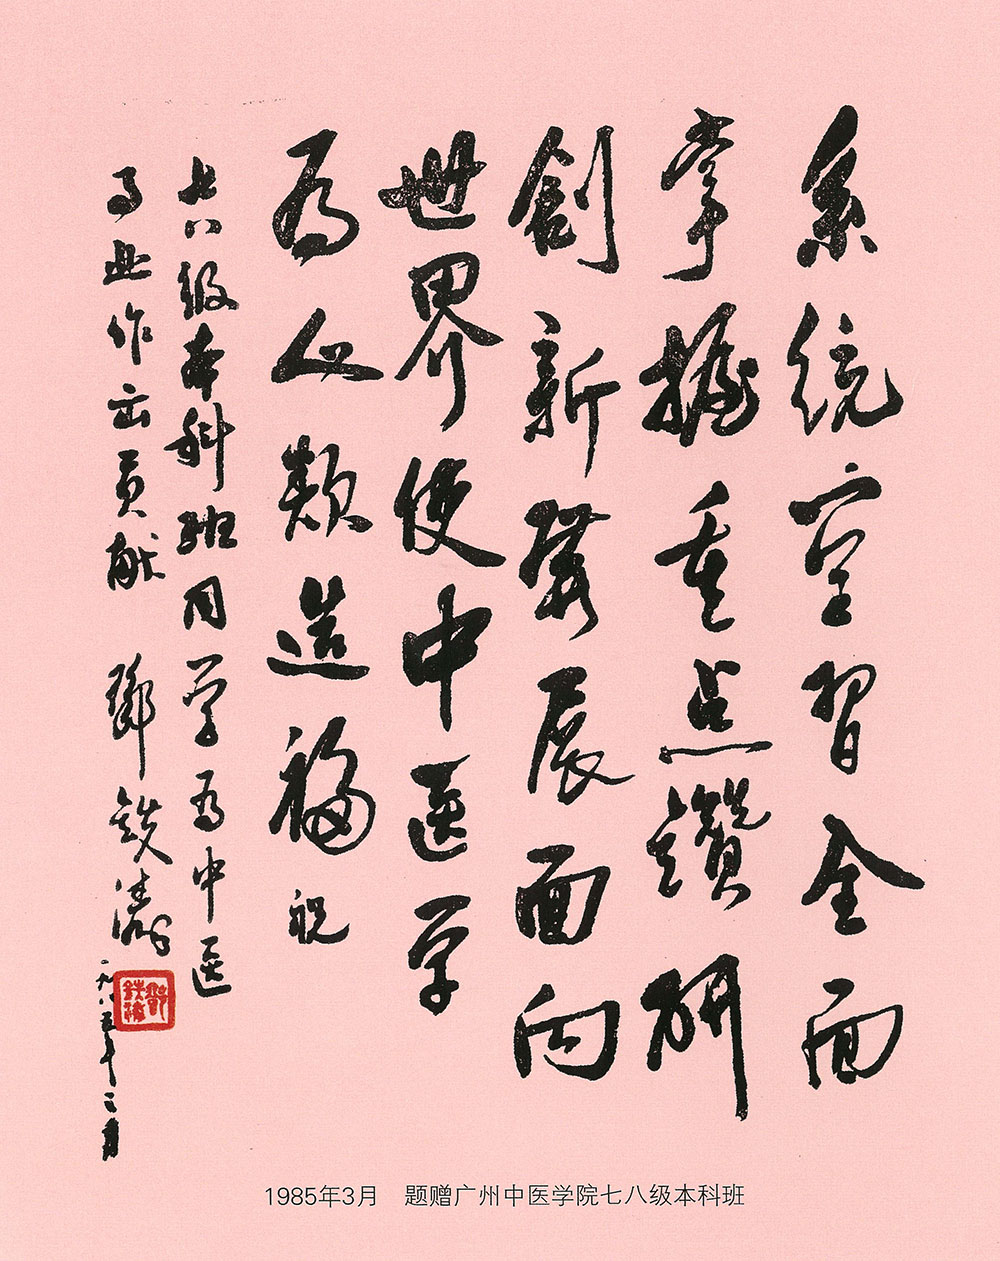 系統学習全面
掌握重点鑽研
創新發展面向
世界使中医学
为人類造福 祝
七八级本科班同学为中医
事业作出贡献 鄧鉄濤
一九八五年三月
1985年3月 题赠广州中医学院七八级本科班